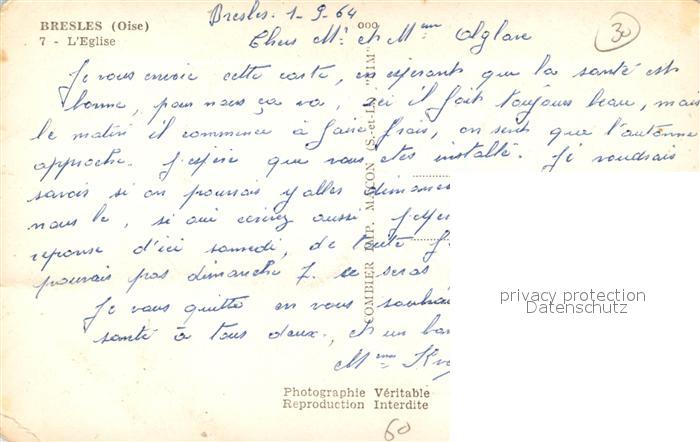 BRESLES (Oise)
7 - L'Eglise
Bresles. 1-9-64
30
Chers Mr et Mme
Je vous envoie cette carte, en espérant que la santé est
bonne, pour nous ça va, ici il fait toujours beau, mais
le matin il commence à faire frais, on sent que l'automne
approche. J'espère que vous etes installé. Je voudrais
savoir si on pourrais y aller dimanc
nous le, si oui écrivez aussi
reponse d'ici samedi, de toute
pouvais pas dimanche 7. ce seras
Je vous quitte en vous souhai
santé à tous deux., et un bon
Mme
COMBIER IMP. MACON (S.-et-L.) "CIM"
privacy protection
Datenschutz
Photographie Véritable
Reproduction Interdite
60